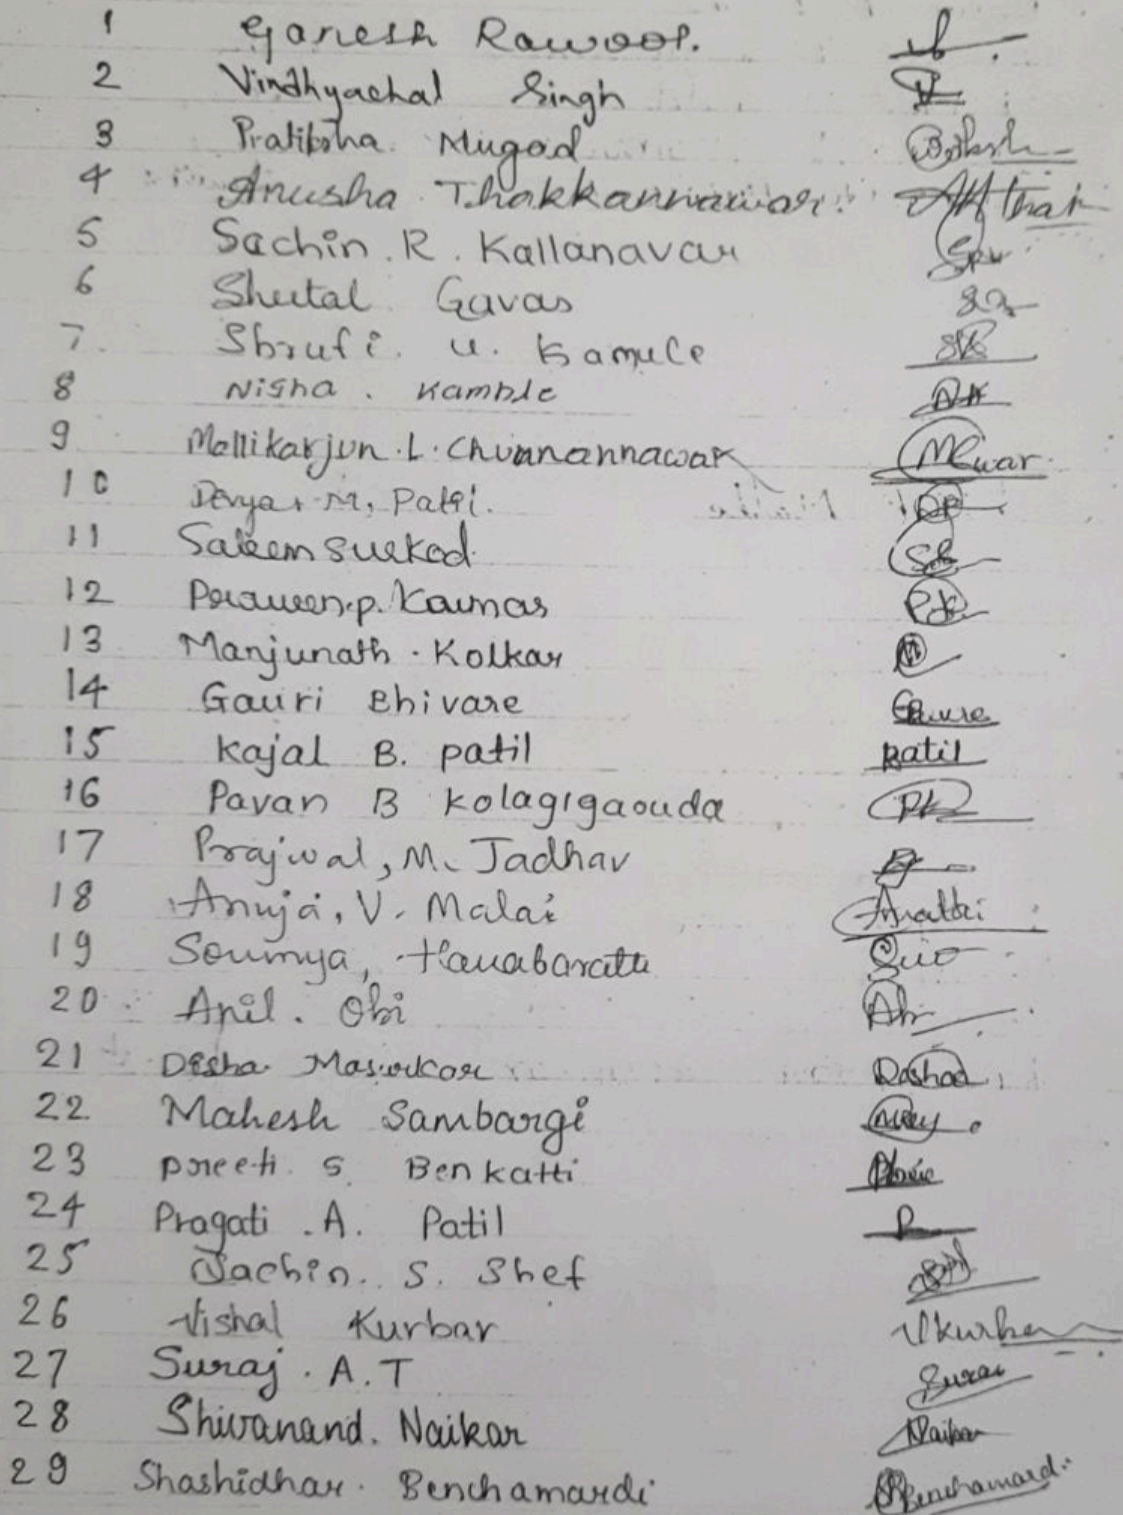 1 Ganesh Rawool.
2 Vindhyachal Singh
3 Pratiksha. Mugad
4 Anusha Thakkannawar.
5 Sachin. R. Kallanavar
6 Shital Gavas
7. Shrufi. U. Kamule
8 Nisha. Kamble
9 Mallikarjun. L. Chunnannawar MCwar
10 Divya. M. Patri.
11 Saleem Surkod
12 Peraween. p. Kaumas
13 Manjunath. Kolkar
14 Gauri Bhivare
15 Kajal B. patil patil
16 Pavan B Kolagigaouda PK
17 Prajwal, M. Jadhav
18 Anuja, V. Malai
19 Soumya,
20 Anil. Obi
21 Disha Masurkar
22 Mahesh Sambargi
23 preeti. S. Benkatti
24 Pragati. A. Patil
25 Sachin. S. Shef
26 Vishal Kurbar
27 Suraj. A. T Suraj
28 Shivanand. Naikar Naikar
29 Shashidhar. Benchamardi Benchamardi